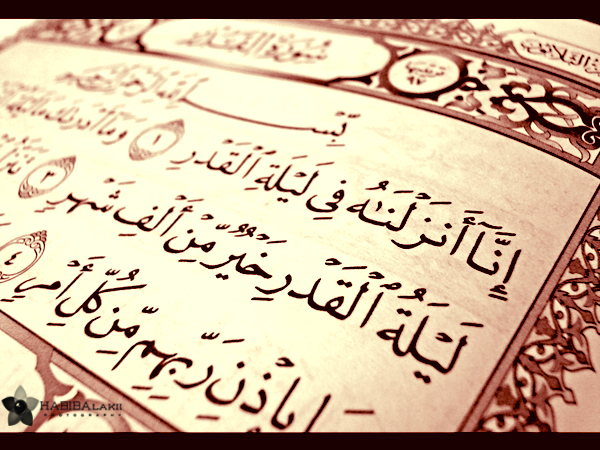 سُورَةُ القَدْرِ
بِسْمِ ٱللَّهِ ٱلرَّحْمَٰنِ ٱلرَّحِيمِ
إِنَّآ أَنزَلْنَٰهُ فِى لَيْلَةِ ٱلْقَدْرِ ١ وَمَآ أَدْرَىٰكَ مَا لَيْلَةُ
لَيْلَةُ ٱلْقَدْرِ خَيْرٌ مِّنْ أَلْفِ شَهْرٍ ٣
بِإِذْنِ رَبِّهِم مِّن كُلِّ أَمْرٍ ٤
HABIBALAKII
PHOTOGRAPHY